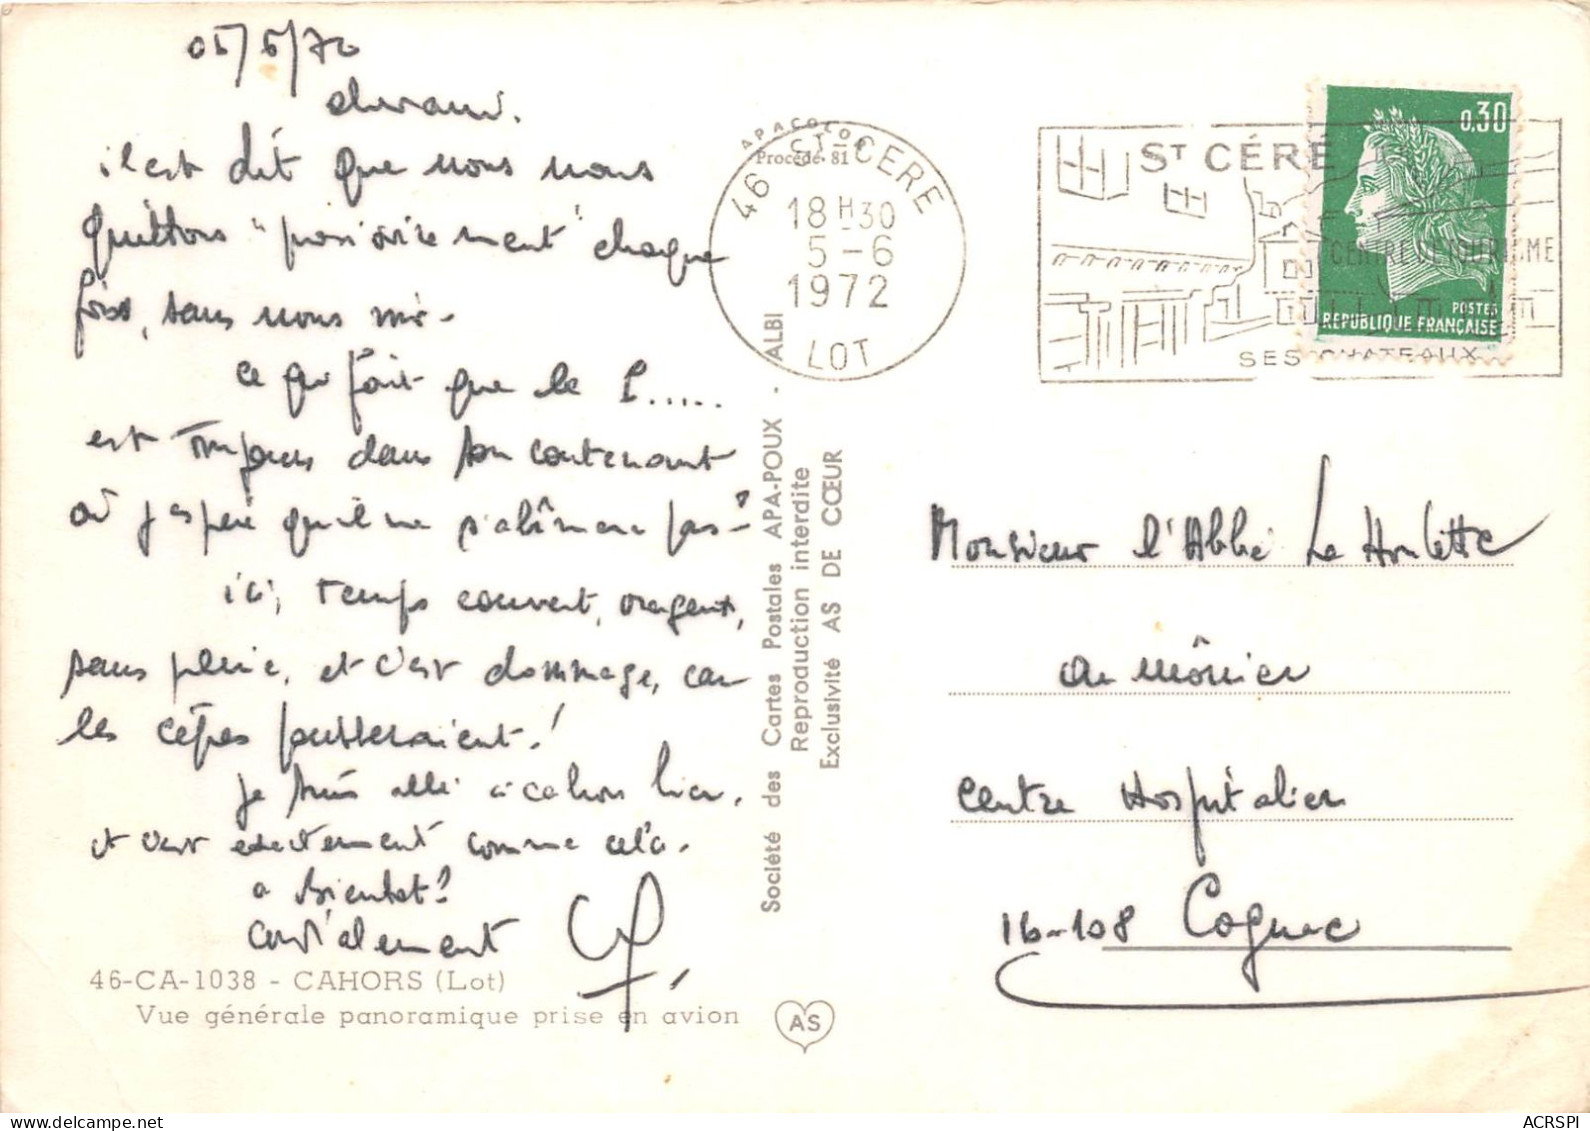 05/6/72
il est dit que nous nous
quittons "provisoirement" chaque
fois, sans nous
ce qui fait que le L.....
est toujours dans son contenant
où j'espère qu'il ne s'abîmera pas -
ici, temps couvert, orageux,
sans pluie, et c'est dommage, car
les cèpes pousseraient!
je suis allé à Cahors hier,
et c'est exactement comme cela.
a bientot?
cordialement
46-CA-1038 - CAHORS (Lot)
Vue générale panoramique prise en avion
Société des Cartes Postales APA-POUX - ALBI
Reproduction interdite
Exclusivité AS DE CŒUR
AS
APACOLOR
Procédé 81
46 ST-CERE
18H30
5-6
1972
LOT
ST CÉRÉ
CENTRE DE TOURISME
SES CHATEAUX
0,30
POSTES
REPUBLIQUE FRANÇAISE
Monsieur l'Abbé La Houlette
aumônier
Centre Hospitalier
16-108 Cognac
ACRSPI